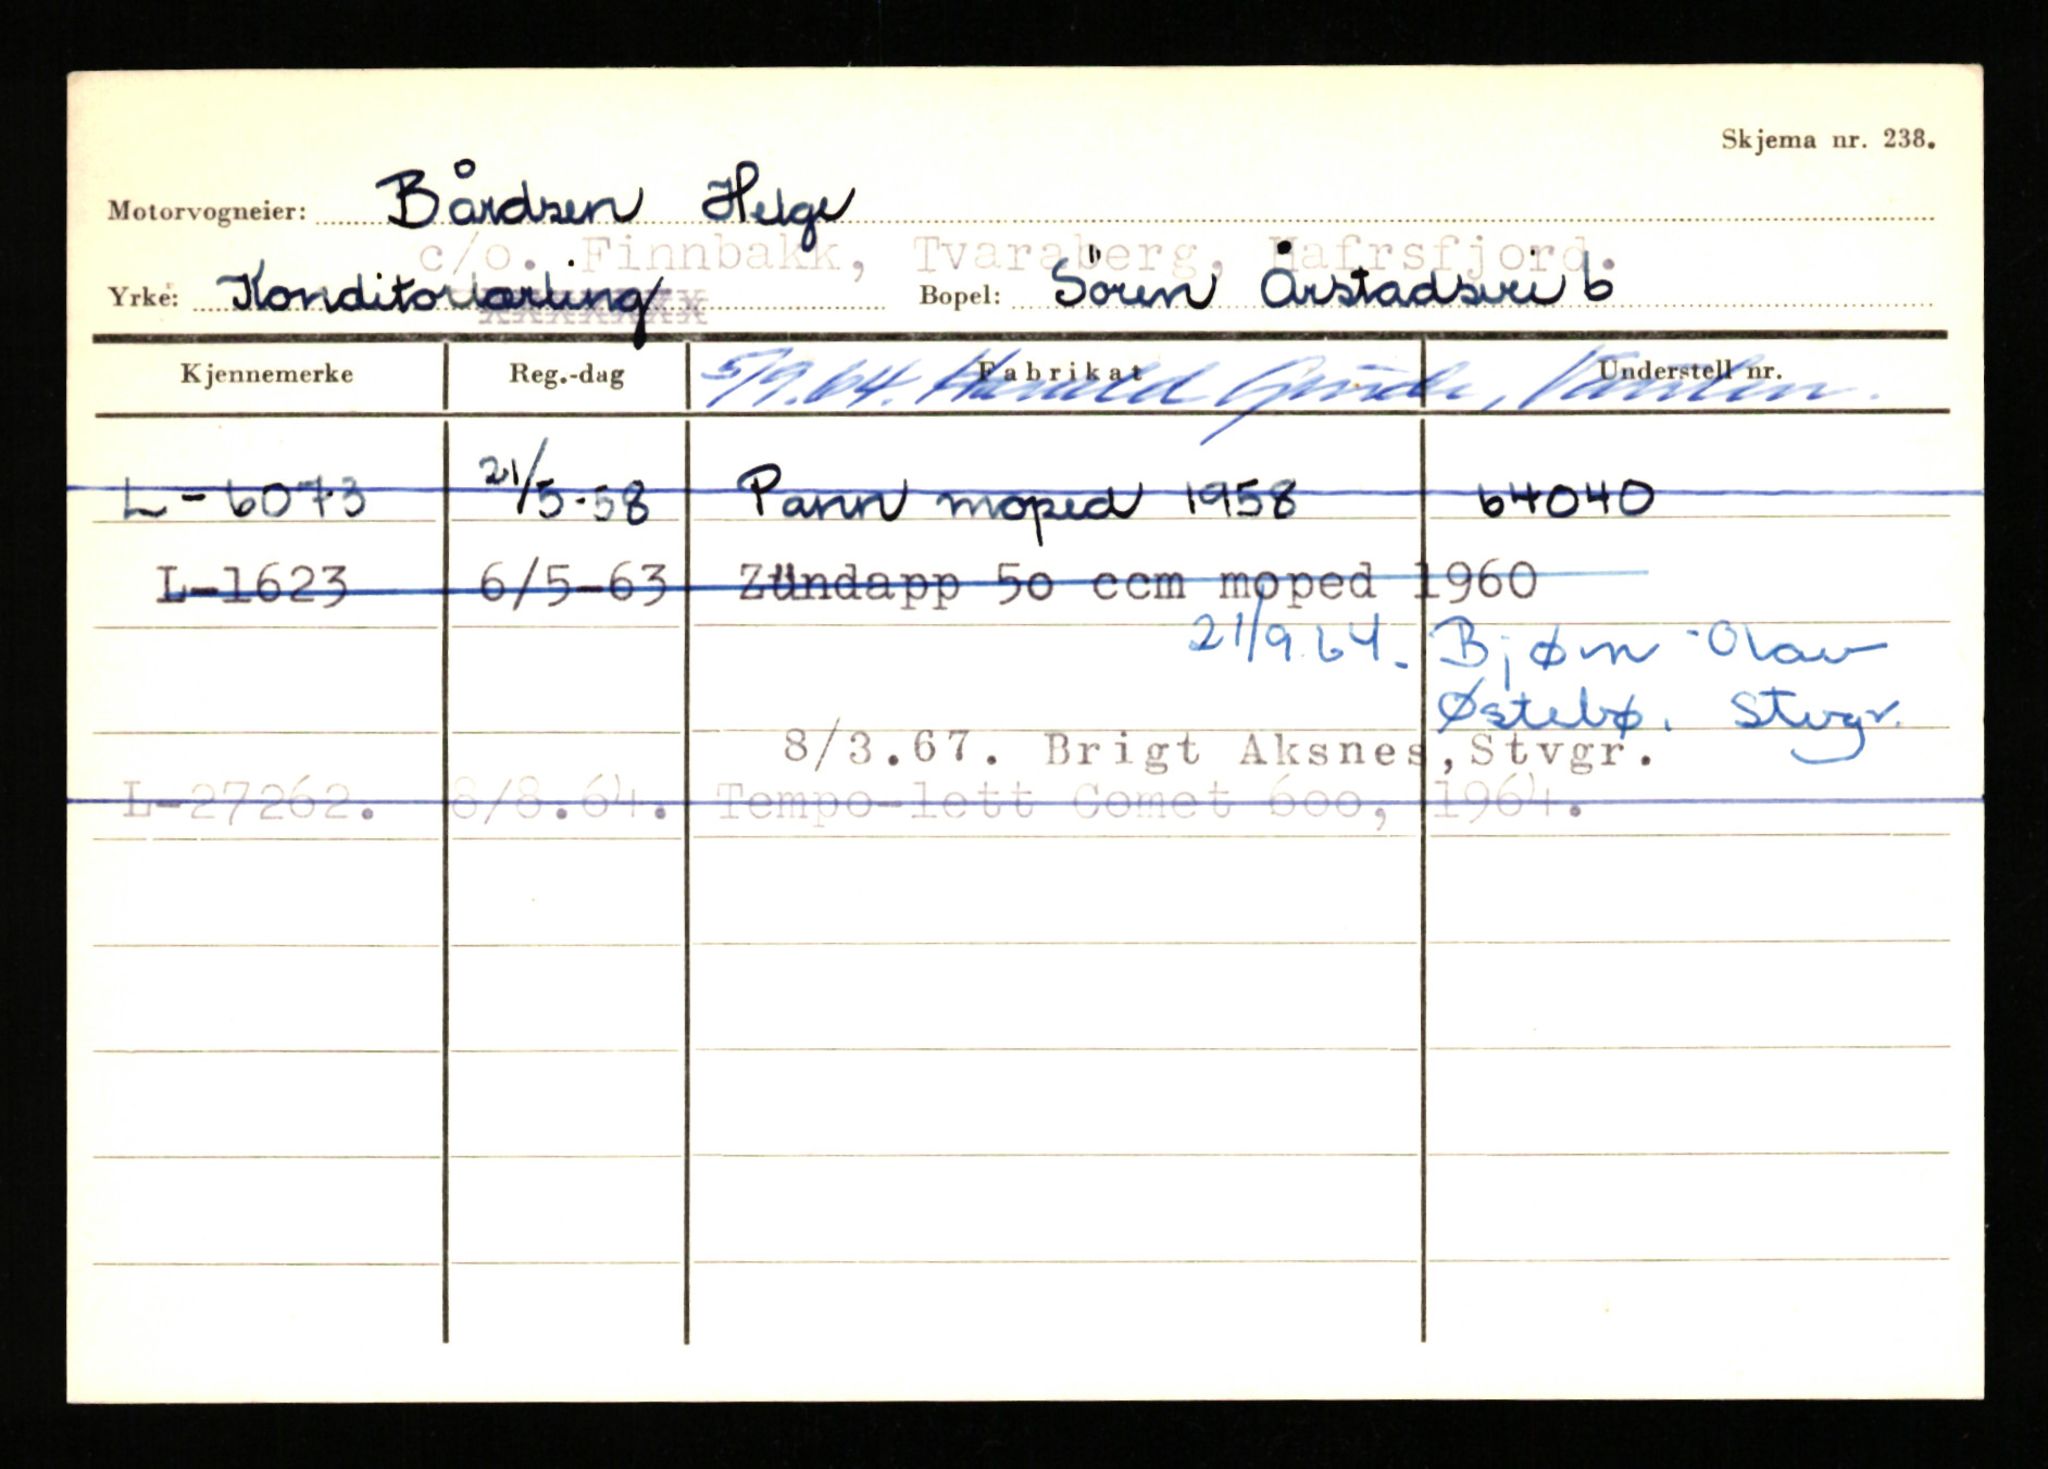 Skjema nr. 238.
Motorvogneier: Bårdsen Helge
c/o. Finnbakk, Tvaraberg, Hafrsfjord.
Yrke: Konditorlærling xxxxxxx Bopel: Sören Årstadsvei 6
Kjennemerke Reg.-dag Fabrikat Understell nr.
5/9.64. Harald
L-6073 21/5-58 Pann moped 1958 64040
L-1623 6/5-63 Zündapp 5o ccm moped 1960
21/9.64. Bjørn Olav
Østebø. Stvgr.
8/3.67. Brigt Aksnes,Stvgr.
L-27262. 8/8.64. Tempo-lett Comet 6oo, 1964.